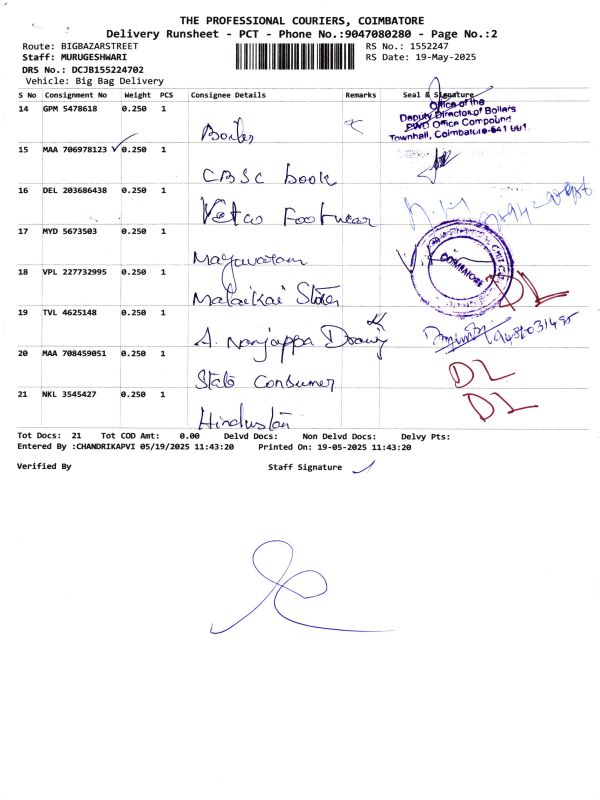 THE PROFESSIONAL COURIERS, COIMBATORE
Delivery Runsheet - PCT - Phone No.:9047080280 - Page No.:2
Route: BIGBAZARSTREET
RS No.: 1552247
Staff: MURUGESHWARI
RS Date: 19-May-2025
DRS No.: DCJB155224702
Vehicle: Big Bag Delivery
S No Consignment No Weight PCS Consignee Details Remarks Seal & Signature
14 GPM 5478618 0.250 1 Boiler
Office of the
Deputy Director of Boilers
PWD Office Compound
Townhall, Coimbatore-641 001.
15 MAA 706978123 0.250 1 CBSC book
16 DEL 203686438 0.250 1 Vetco Footwear
17 MYD 5673503 0.250 1 Mayavaram
COIMBATORE
18 VPL 227732995 0.250 1 Malaikai Store DL
19 TVL 4625148 0.250 1 A. Nanjappa
20 MAA 708459051 0.250 1 State Consumer DL
21 NKL 3545427 0.250 1 Hindustan DL
Tot Docs: 21 Tot COD Amt: 0.00 Delvd Docs: Non Delvd Docs: Delvy Pts:
Entered By :CHANDRIKAPVI 05/19/2025 11:43:20 Printed On: 19-05-2025 11:43:20
Verified By Staff Signature